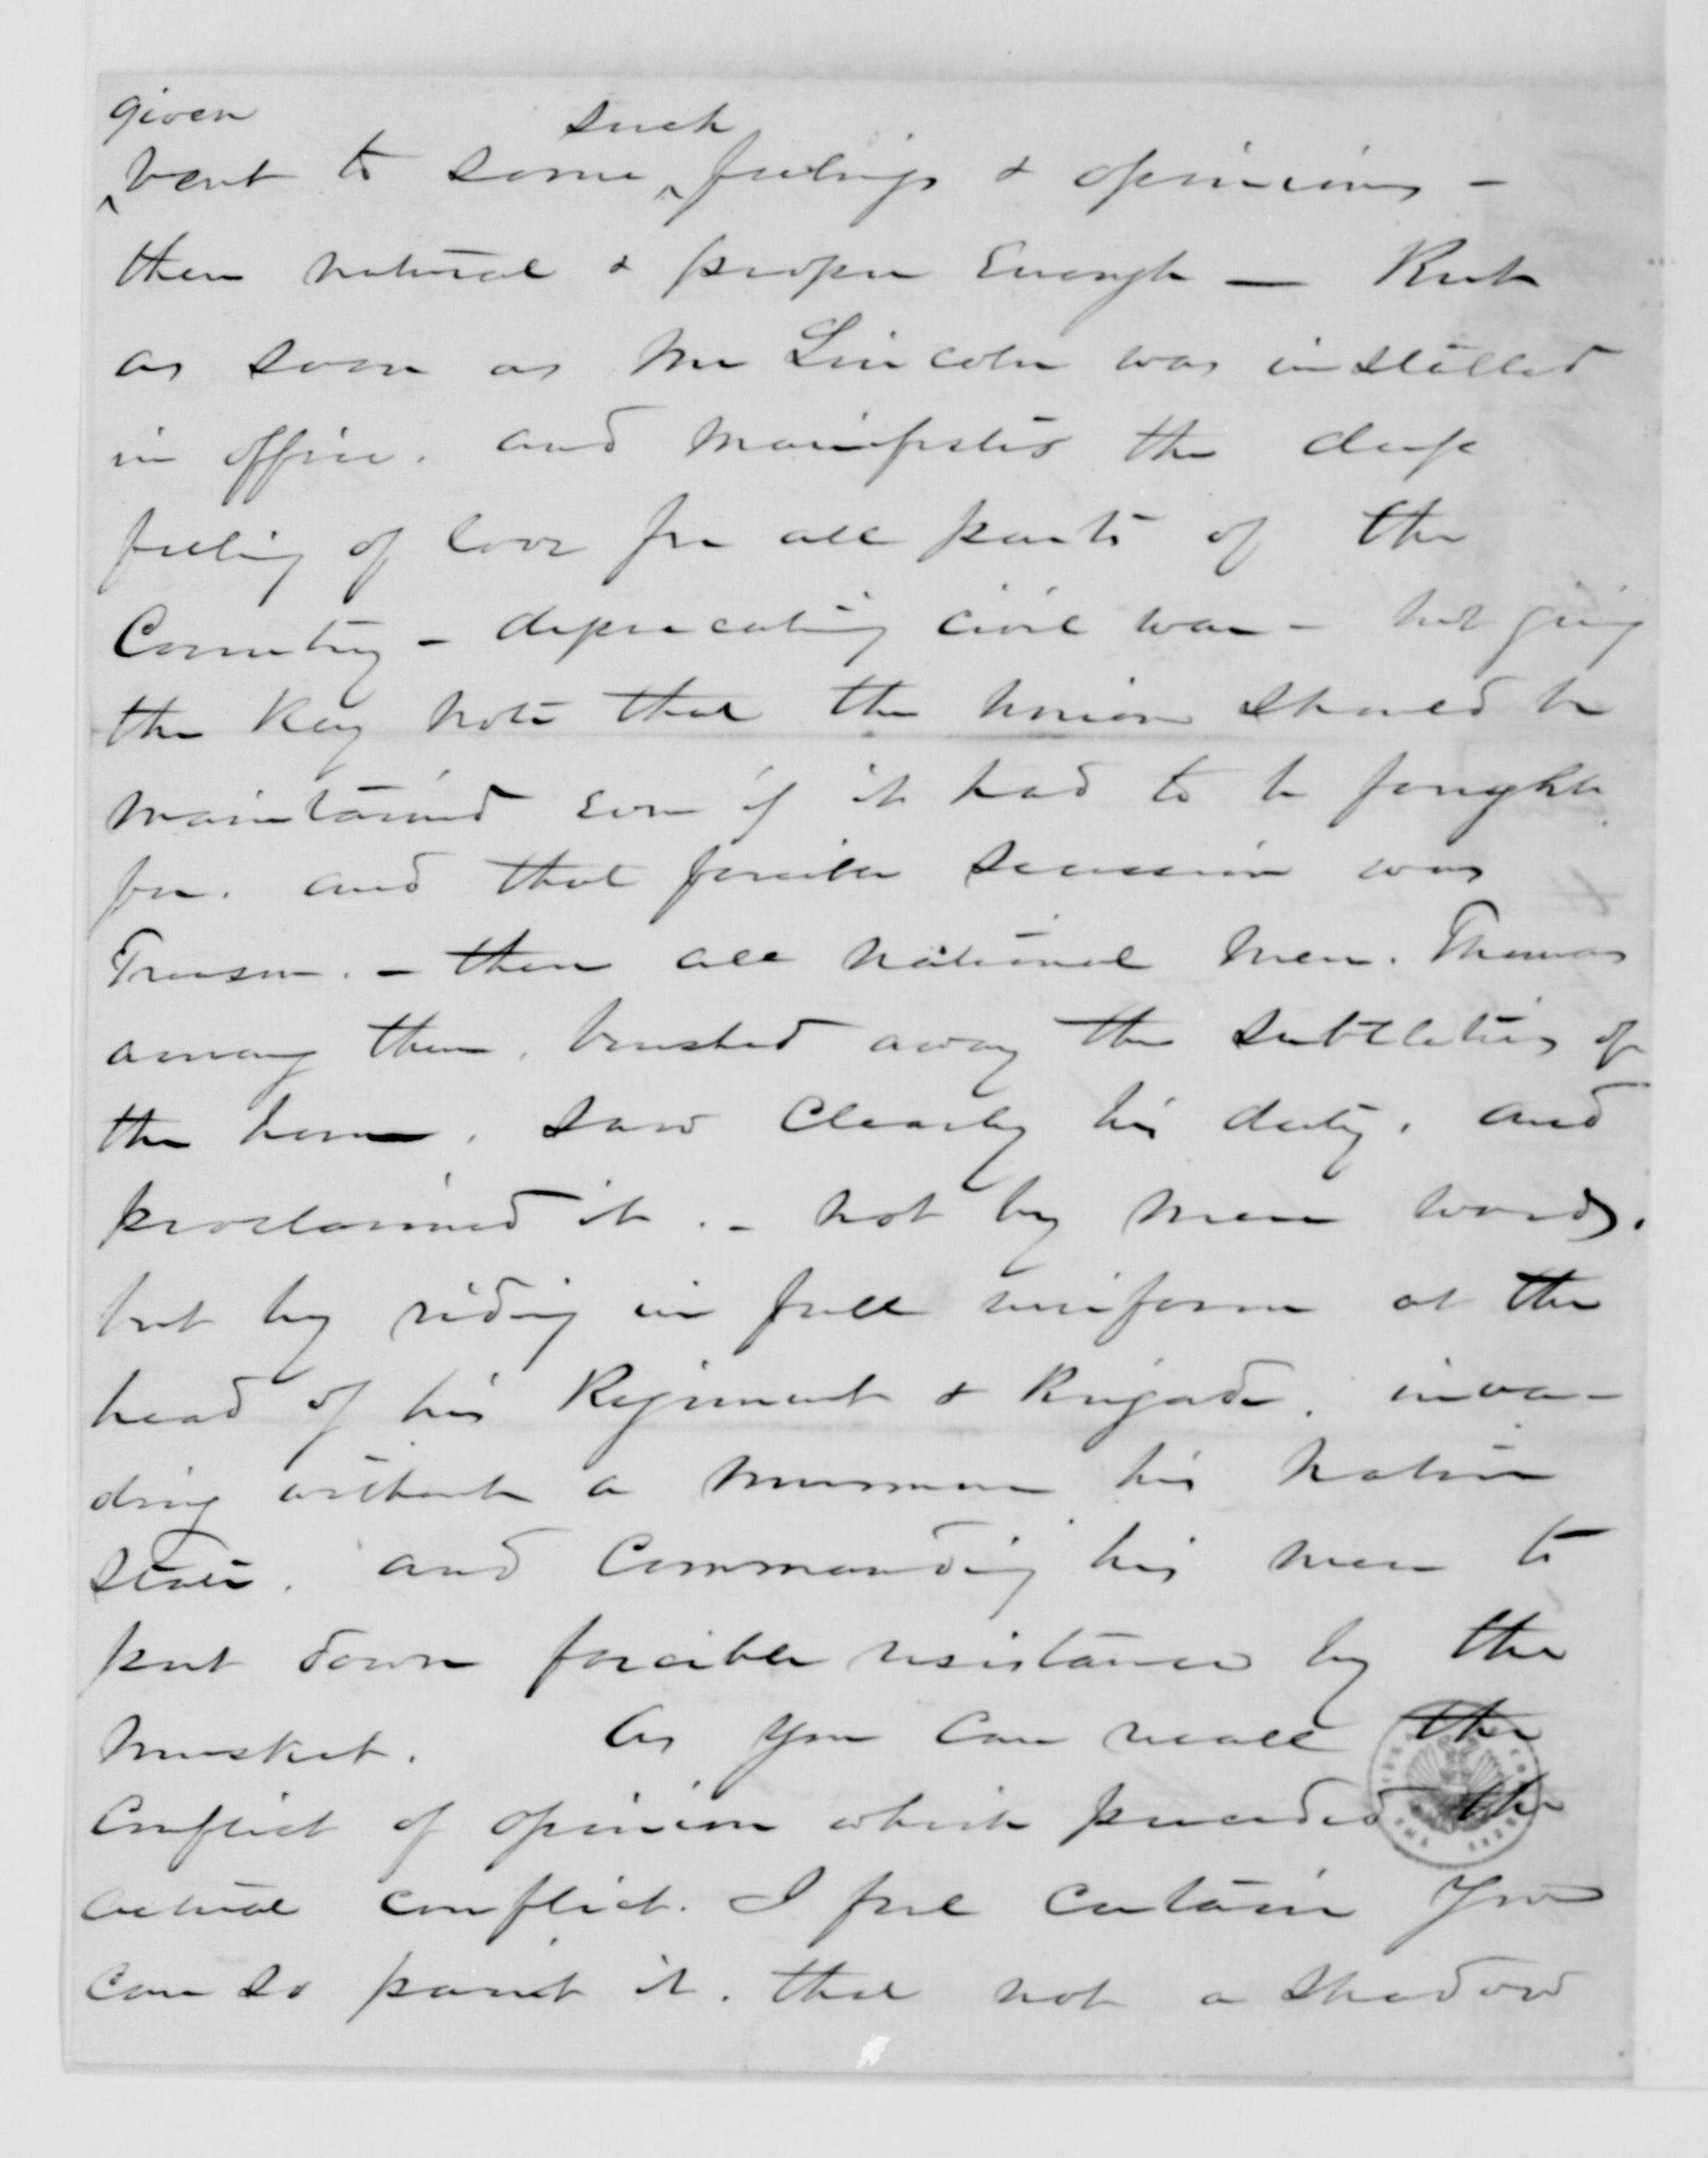 given such
vent to some feelings & opinions -
then natural & proper Enough — But
as soon as Mr Lincoln was installed
in office. and manifested the deep
feeling of love for all parts of the
Country - deprecating civil war - but giving
the Key note that the Union should be
maintained even if it had to be fought
for. and that forcible secession was
Treason. - then all national men. Thomas
among them, brushed away the subtleties of
the hour, saw Clearly his duty. and
proclaimed it. - not by mere words.
but by riding in full uniform at the
head of his Regiment & Brigade, inva-
ding without a murmur his native
State. and Commanding his men to
put down forcible resistance by the
musket. As you can recall the
Conflict of opinion which preceded the
actual conflict. I feel certain you
can so paint it. that not a shadow